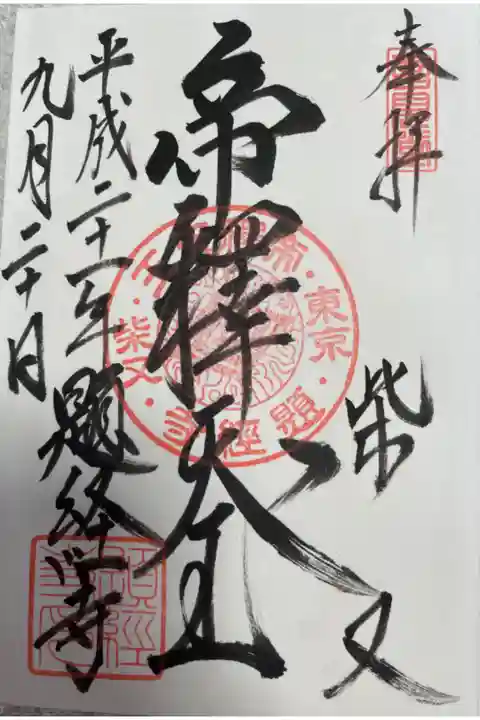 奉拝
柴又
帝釋天王
平成二十一年
九月二十日
題経寺
東京
柴又
題經寺